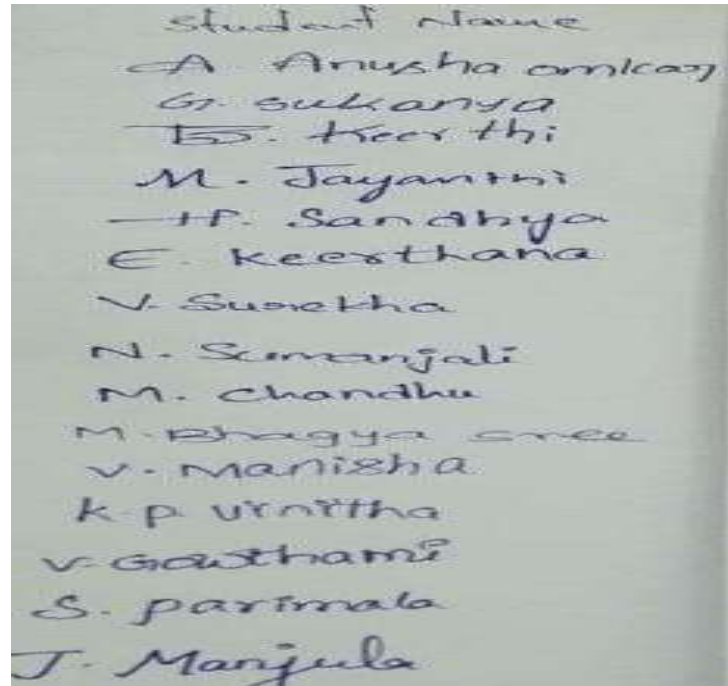 Student Name
A Anusha omkar
G. sukanya
D. Keerthi
M. Jayanthi
H. Sandhya
E. Keerthana
V. Surekha
N. Sumanjali
M. Chandhu
M. Bhagya sree
V. Manisha
K. P. Vinitha
V. Gowthami
S. parimala
J. Manjula